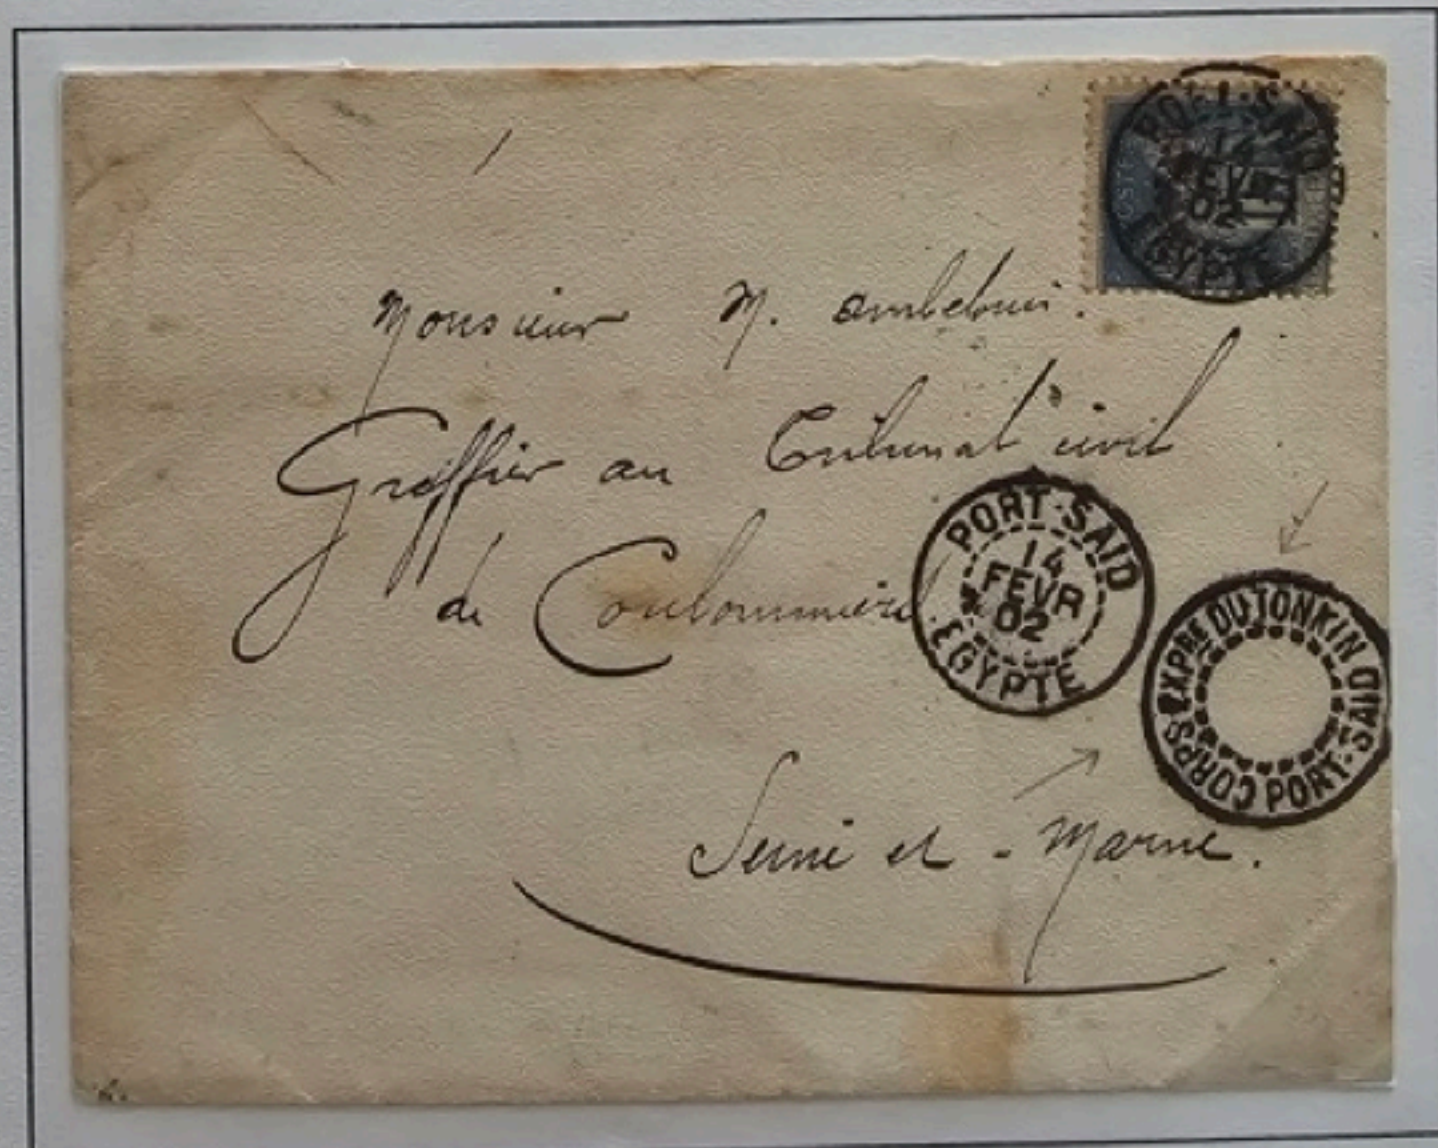 PORT-SAID
14
FEVR
02
EGYPTE
Monsieur M.
Greffier au Tribunal civil
de Coulommiers
PORT-SAID
14
FEVR
02
EGYPTE
CORPS EXPRE DU TONKIN
PORT-SAID
Seine et - Marne.